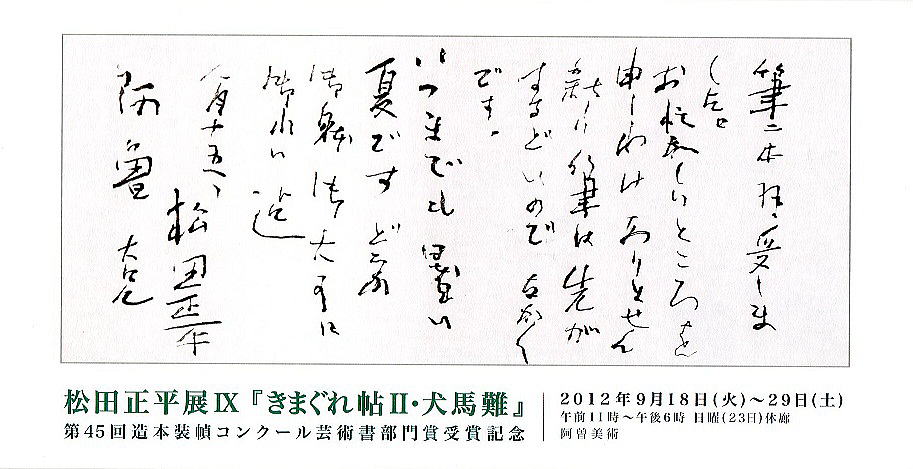 筆二本拝受しま
した
お忙しいところを
申しわけありません
筆は先が
するどいので
です。
いつまでも暑い
夏です どうか
御身体御大事に
迄
松田正平
大兄
松田正平展Ⅸ『きまぐれ帖Ⅱ・犬馬難』
第45回造本装幀コンクール芸術書部門賞受賞記念
2012年9月18日(火)～29日(土)
午前11時～午後6時 日曜(23日)休廊
阿曽美術